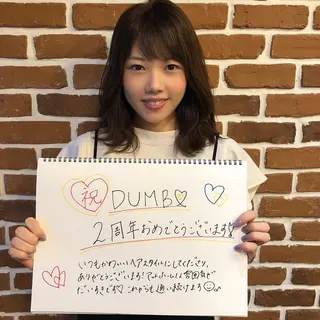 祝 DUMBO
2周年おめでとうございます!
いつもかわいいヘアスタイルにしてくださり、
ありがとうございます!アットホームな雰囲気が
だいすきです♡これからも通い続けます☺♪